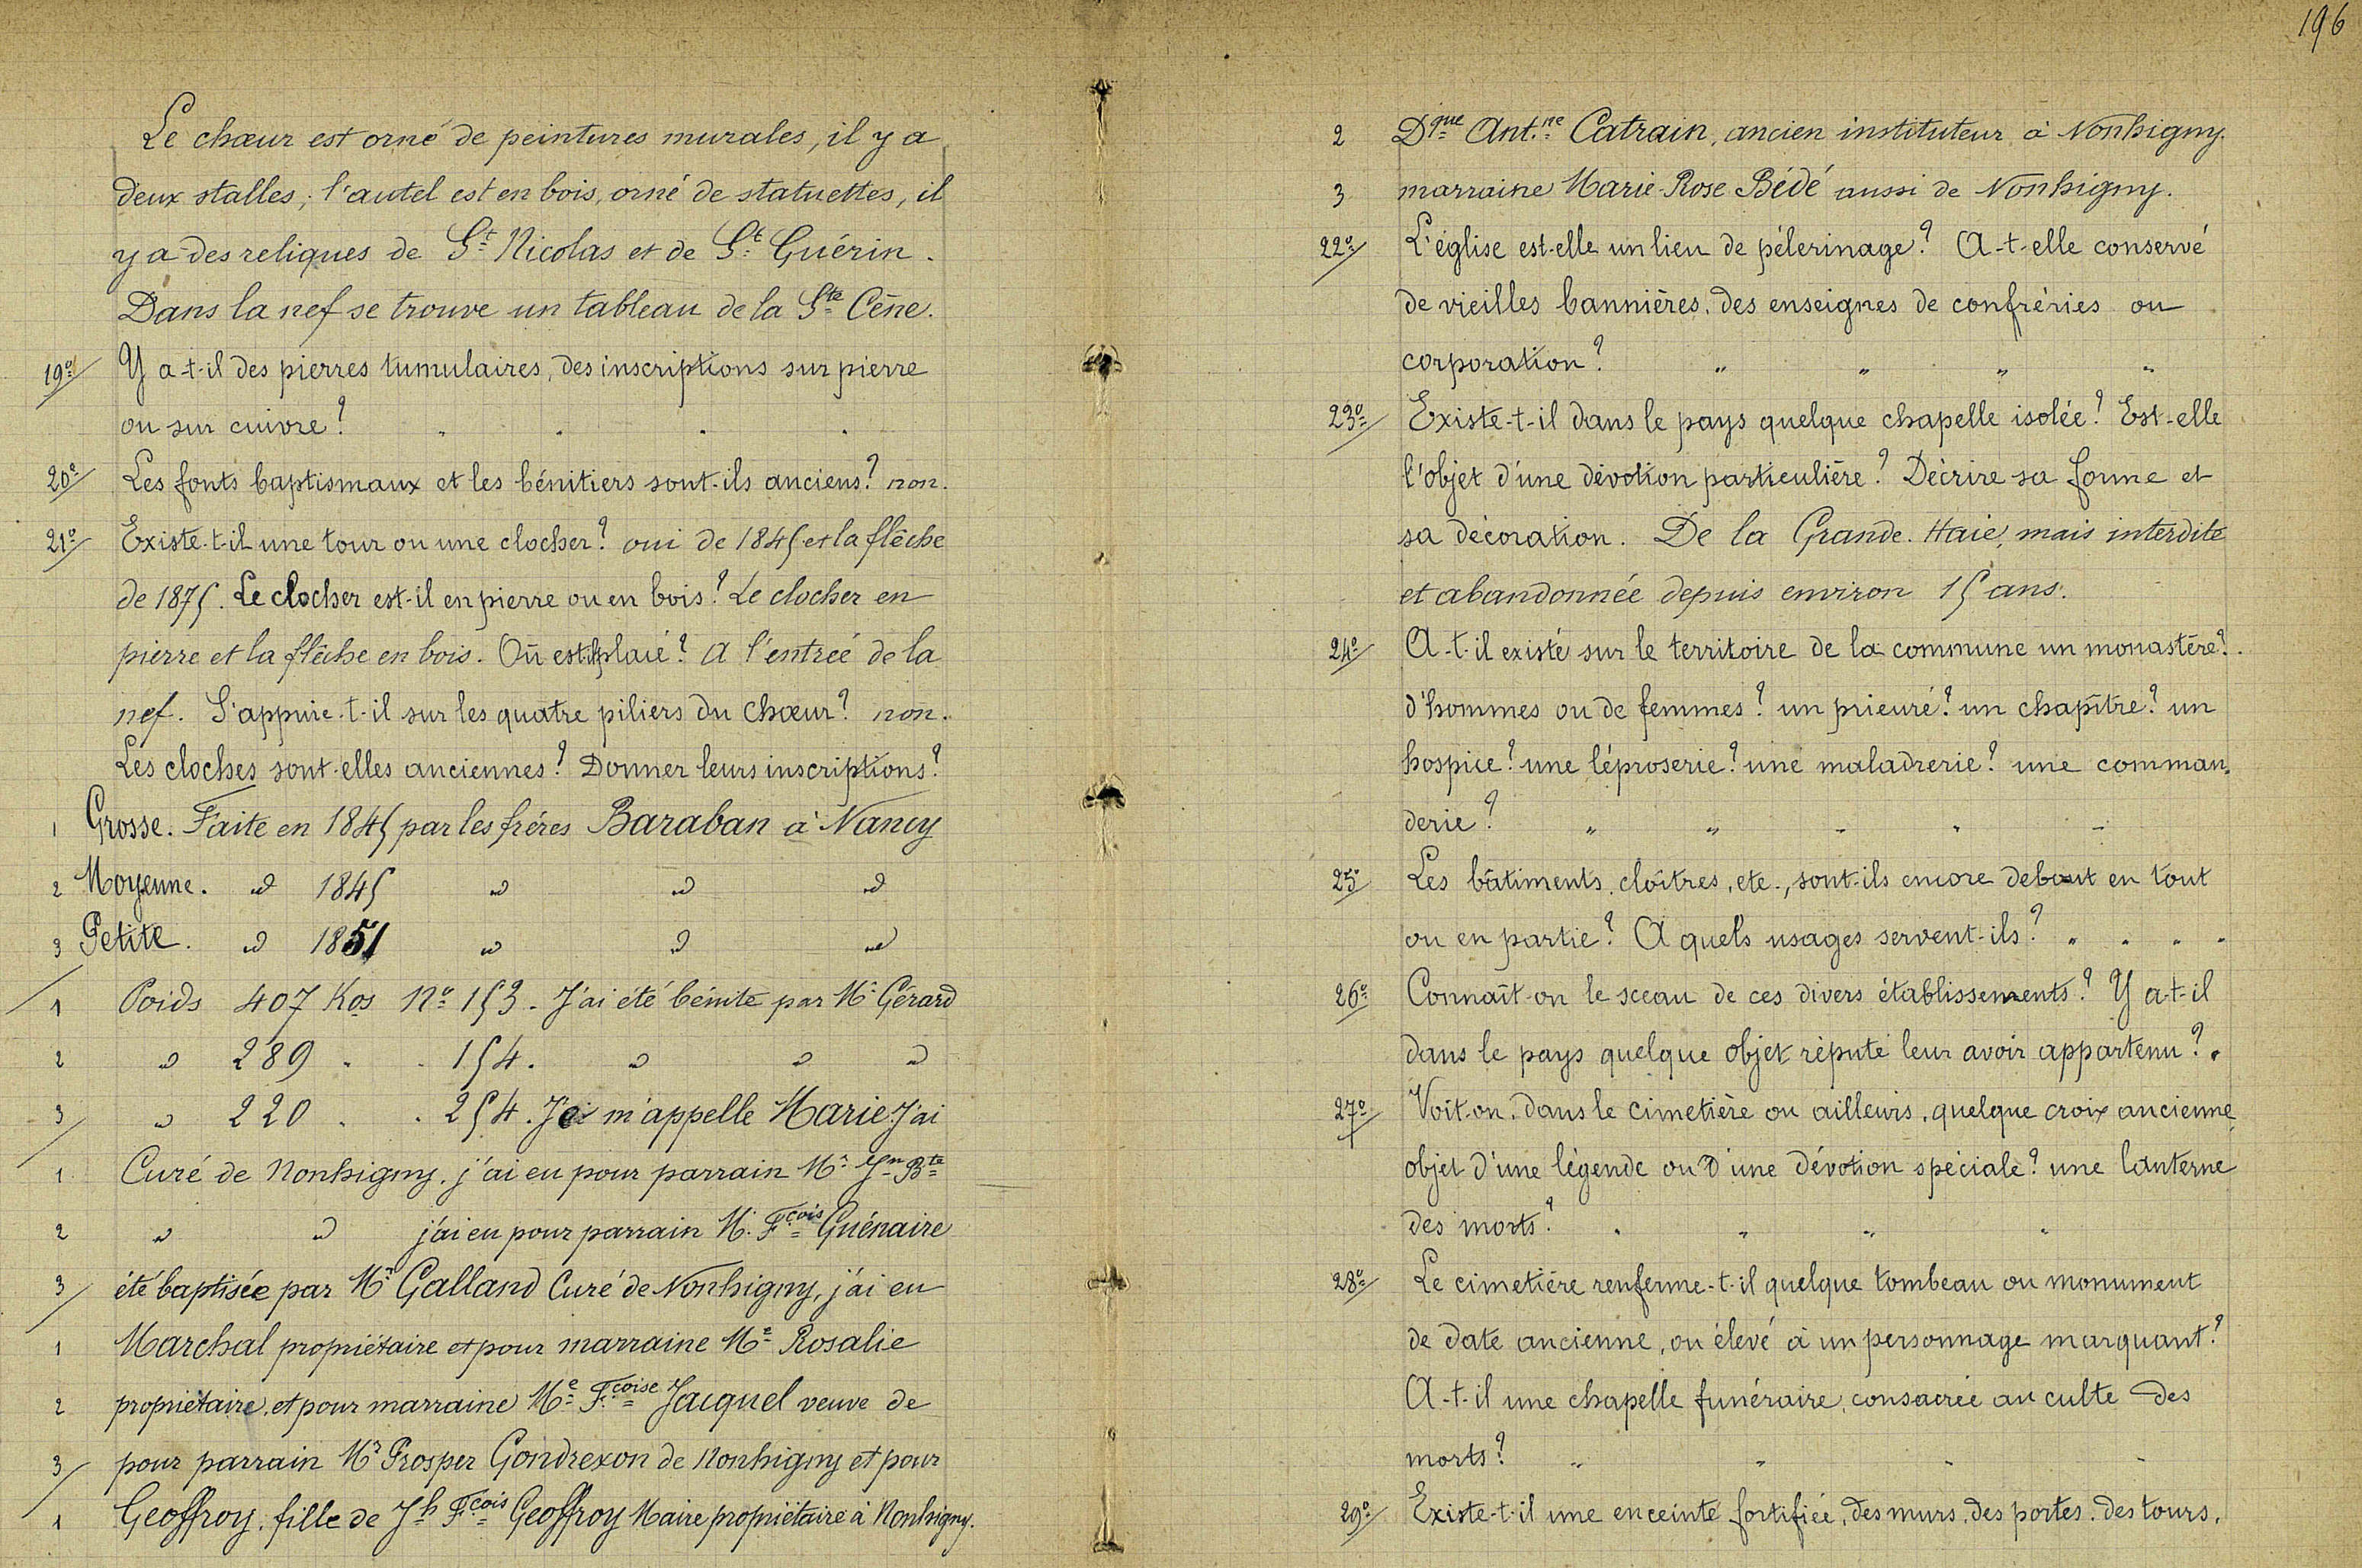 Le chœur est orné de peintures murales, il y a
deux stalles, l'autel est en bois, orné de statuettes, il
y a des reliques de St Nicolas et de St Guérin.
Dans la nef se trouve un tableau de la Ste Cène.
19o/ Y a-t-il des pierres tumulaires, des inscriptions sur pierre
ou sur cuivre? " " " "
20o/ Les fonts baptismaux et les bénitiers sont-ils anciens? non.
21o/ Existe-t-il une tour ou une clocher? oui de 1845 et la flèche
de 1875. Le clocher est-il en pierre ou en bois? Le clocher en
pierre et la flèche en bois. Où est-il placé? A l'entrée de la
nef. S'appuie-t-il sur les quatre piliers du chœur? non.
Les cloches sont-elles anciennes? Donner leurs inscriptions?
1 Grosse. Faite en 1845 par les frères Baraban à Nancy
2 Moyenne. " 1845 " " "
3 Petite. " 1851 " " "
1 Poids 407 Kos No 153. J'ai été bénite par Mr Gérard
2 " 289 " " 154. " " "
3/ " 220 " " 254. Je m'appelle Marie. J'ai
1 Curé de Nonhigny. j'ai eu pour parrain Mr Jn Bte
2 " " j'ai eu pour parrain M. Fçois Guénaire
3/ été baptisée par Mr Galland Curé de Nonhigny, j'ai eu
1 Marchal propriétaire et pour marraine Me Rosalie
2 propriétaire, et pour marraine Me Fçoise Jacquel veuve de
3/ pour parrain Mr Prosper Gondrexon de Nonhigny et pour
1 Geoffroy, fille de Jh Fçois Geoffroy Maire propriétaire à Nonhigny.
196
2 Dque Ant.ne Catrain, ancien instituteur à Nonhigny.
3 marraine Marie-Rose Bédé aussi de Nonhigny.
22o/ L'église est-elle un lieu de pélerinage? A-t-elle conservé
de vieilles bannières, des enseignes de confréries ou
corporation? " " " "
23o/ Existe-t-il dans le pays quelque chapelle isolée? Est-elle
l'objet d'une dévotion particulière? Décrire sa forme et
sa décoration. De la Grande-Haie, mais interdite
et abandonnée depuis environ 15 ans.
24o/ A-t-il existé sur le territoire de la commune un monastère?
d'hommes ou de femmes? un prieuré? un chapître? un
hospice? une léproserie? une maladrerie? une comman-
derie? " " " " "
25o/ Les bâtiments, cloîtres, etc., sont-ils encore debout en tout
ou en partie? A quels usages servent-ils? " " " "
26o/ Connaît-on le sceau de ces divers établissements? Y a-t-il
dans le pays quelque objet réputé leur avoir appartenu? "
27o/ Voit-on, dans le cimetière ou ailleurs, quelque croix ancienne
objet d'une légende ou d'une dévotion spéciale? une lanterne
des morts? " " " "
28o/ Le cimetière renferme-t-il quelque tombeau ou monument
de date ancienne, ou élevé à un personnage marquant?
A-t-il une chapelle funéraire, consacrée au culte des
morts? " " " "
29o/ Existe-t-il une enceinte fortifiée, des murs, des portes, des tours,